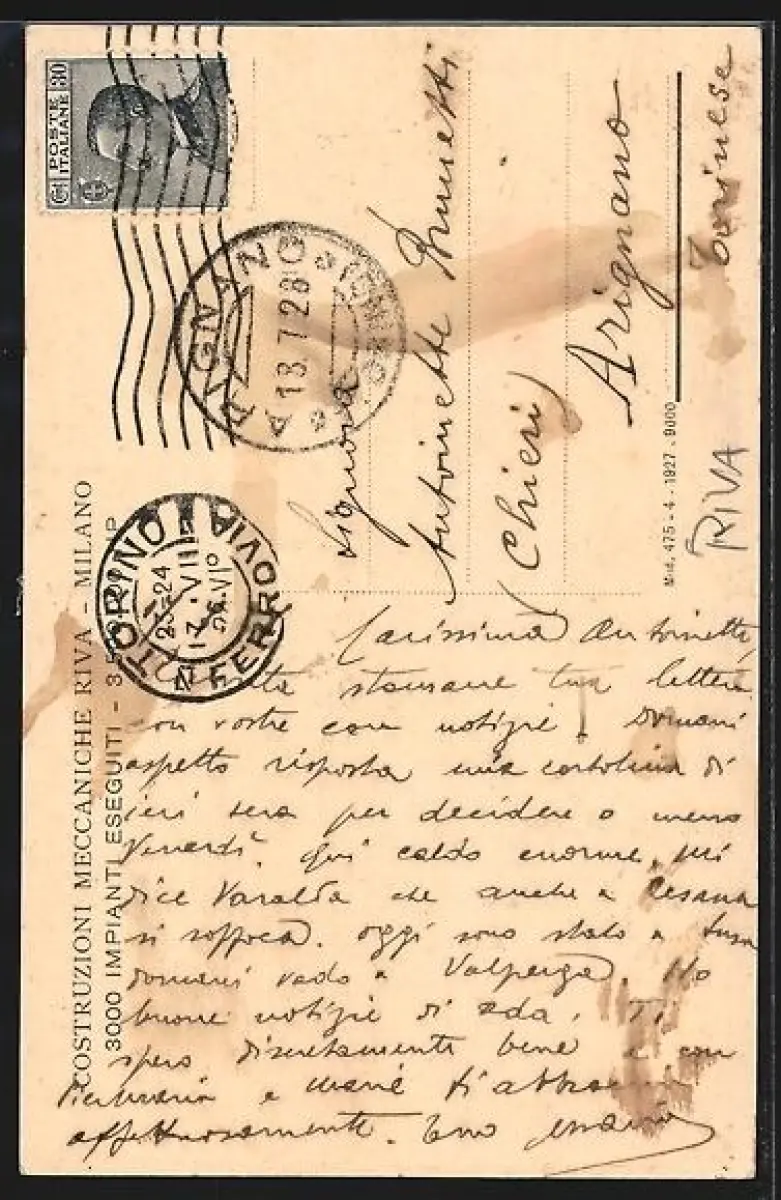 POSTE
ITALIANE
30
ARIGNANO * TORINO *
18.7.28
TORINO
FERROVIA
23-24
17.VII
COSTRUZIONI MECCANICHE RIVA - MILANO
3000 IMPIANTI ESEGUITI - 3.5 HP
Signora
Antoinette Brunetti
(Chieri)
Arignano
Torinese
Mod. 475 - 4 - 1927 - 9000
RIVA
Carissima Antoinette,
stamane tua lettera
con vostre care notizie. Domani
aspetto risposta mia cartolina di
ieri sera per decidere o meno
Venerdì. Qui caldo enorme. Mi
dice Varalda che anche a Cesana
si soffoca. Oggi sono stato a
domani vado a Valperga. Ho
buone notizie di Ada. Ti
spero discretamente bene e con
Piermario e
affettuosamente. Tuo